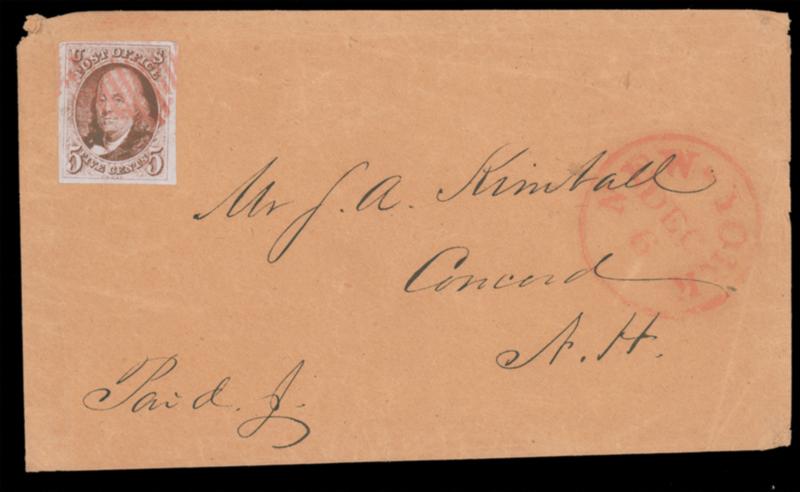 U S
POST OFFICE
5 FIVE CENTS 5
NEW-YORK
DEC
6
Mr J. A. Kimball
Concord
N. H.
Paid. J.